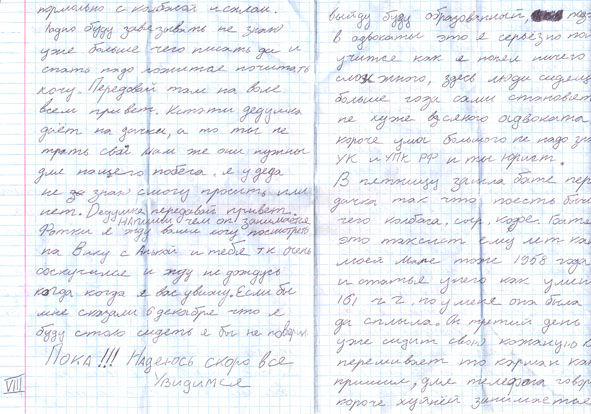 нормально с колбасой и салом.
Ладно буду завязывать не знаю
уже больше чего писать да и
спать надо ложится почитать
хочу. Передавай там на воле
всем привет. Кстати дедушка
даёт на дачки, а то ты не
трать свои нам же они нужны
для нашего побега. я у деда
не знаю смогу просить или
нет. Дедушке передавай привет.
напиши чем он занимается
Фотки я жду ваши хочу посмотреть
на Вику с Аней и тебя т.к очень
соскучился и жду не дождусь
когда когда я вас увижу. Если бы
мне сказали 6 декабря что я
буду столо сидеть я бы не поверил
Пока!!! Надеюсь скоро все
увидимся
VIII
выйду буду образованный,
в адвокаты это я серьёзно
учится как я понял ничего
сложного, здесь люди сидящ
больше года сами становят
не хуже всякого адвоката
короче умы большого не надо
УК и УПК РФ и ты юрист.
В пятницу зашла бате пер
дачка так что поесть было
чего колбаса, сыр, кофе. Батя
это таксист ему лет как
моей маме тоже 1968 года
и статья у него как у меня
161 ч 2. но у меня она была
да сплыла. Он третий день
уже сидит свою кожаную к
перешивает то карман
пришил, для телефона говор
короче хуйнёй занимается